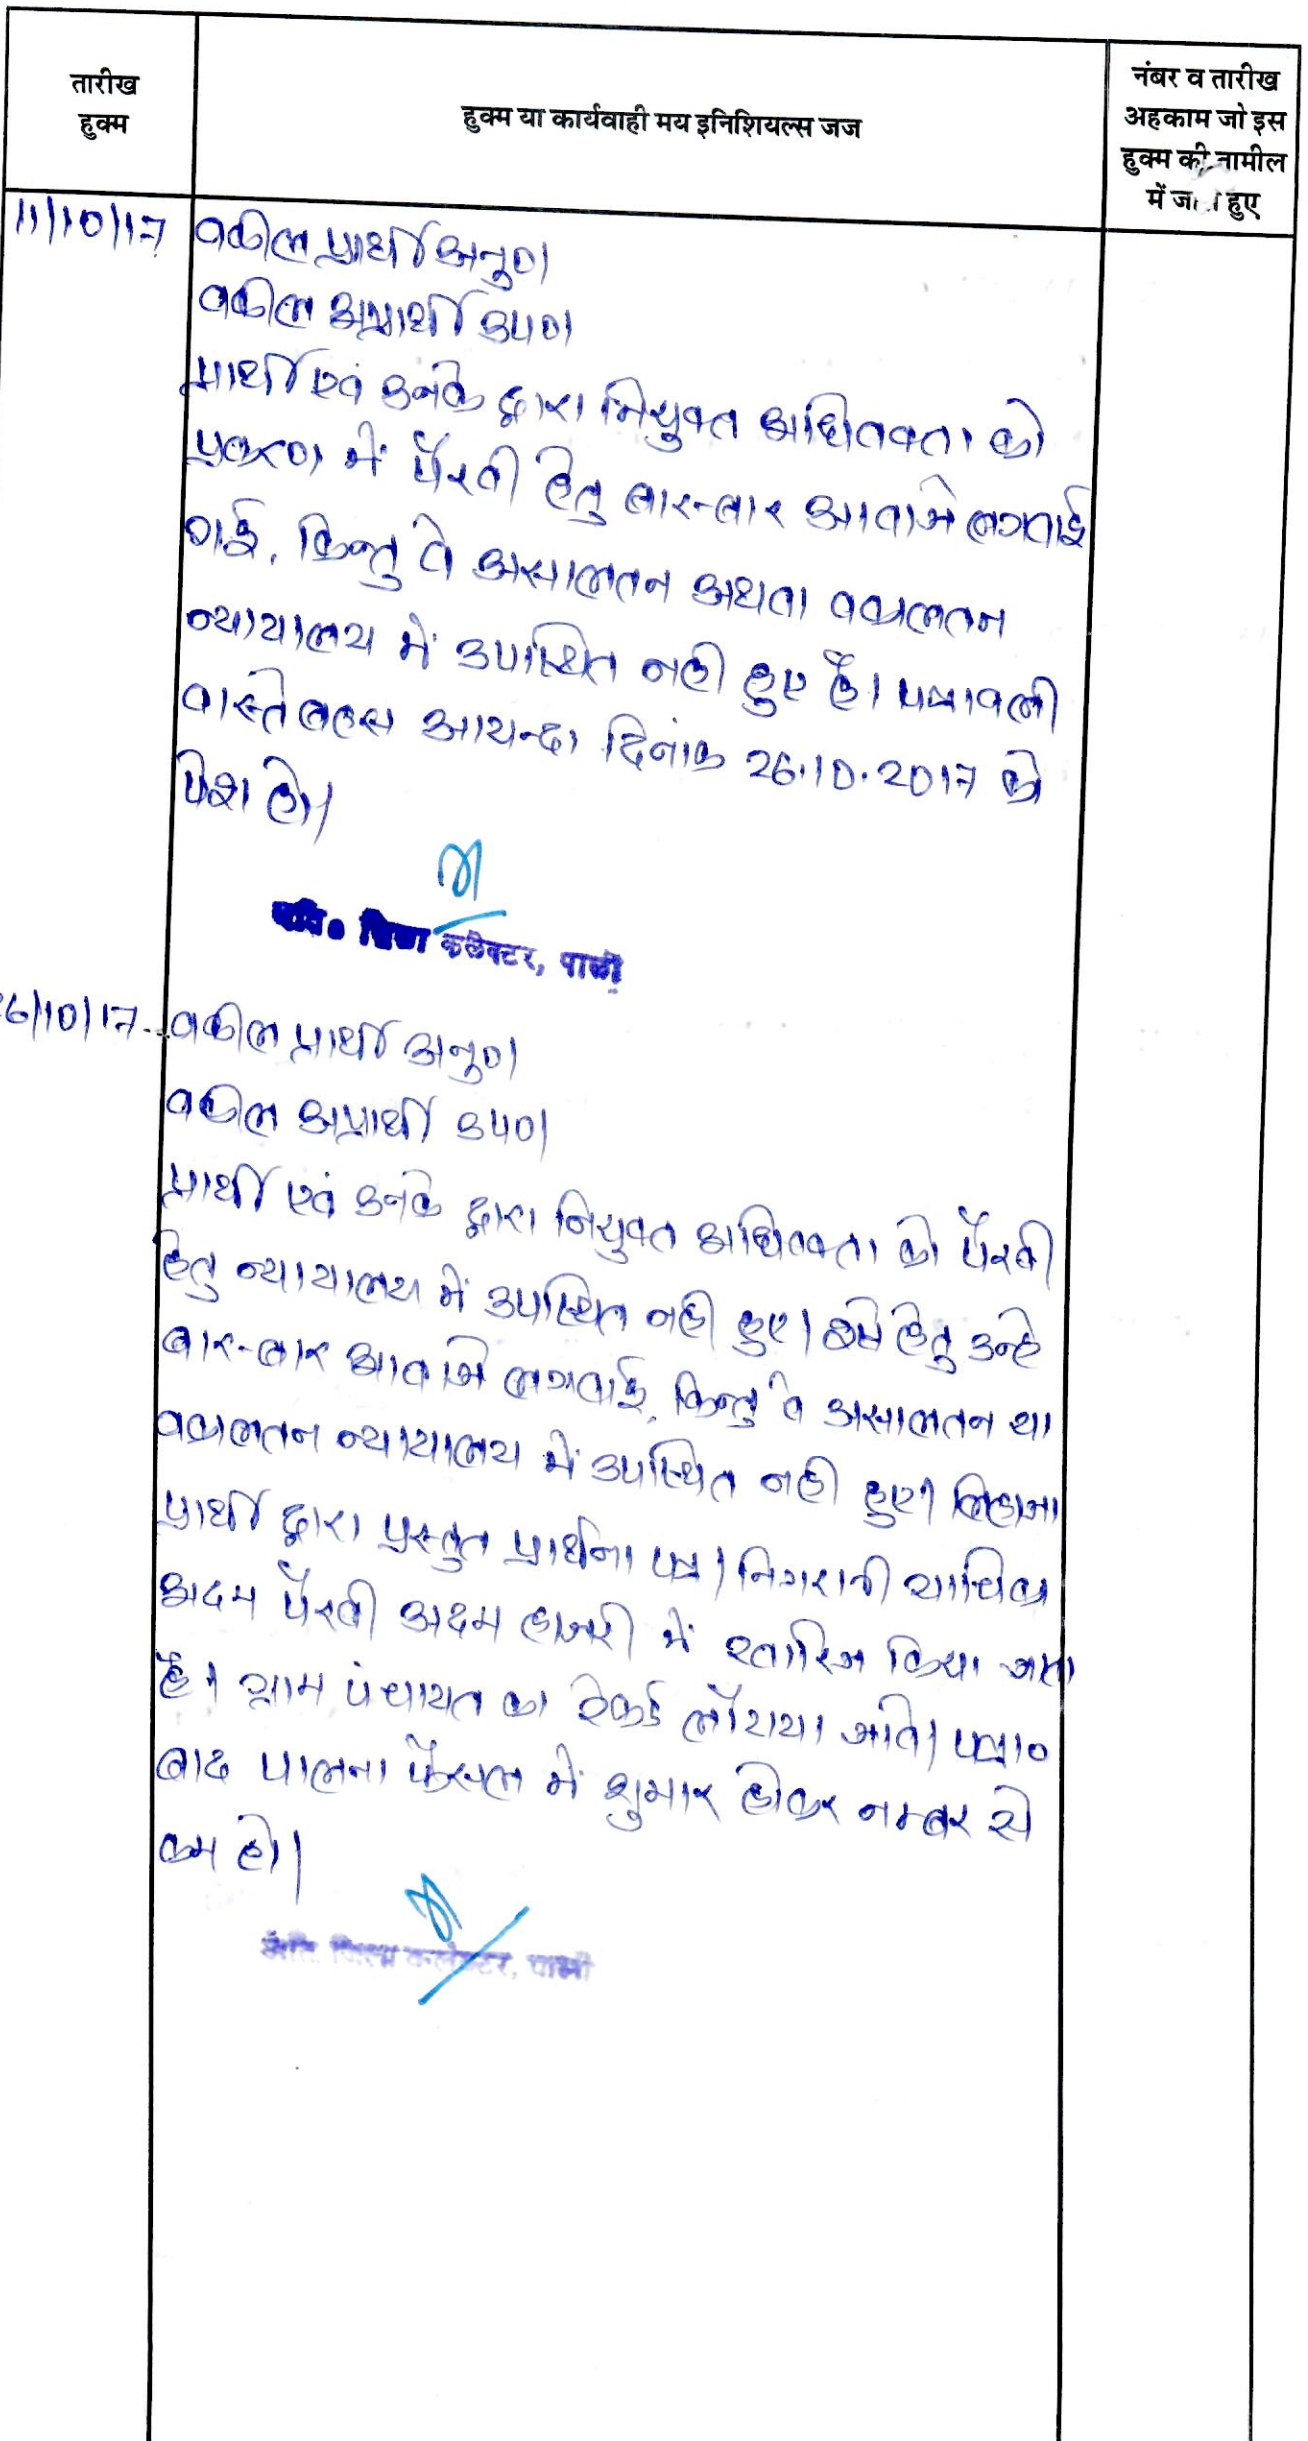 तारीख
हुक्म
हुक्म या कार्यवाही मय इनिशियल्स जज
नंबर व तारीख
अहकाम जो इस
हुक्म की तामील
में जारी हुए
11/10/17
वकील प्रार्थी अनु०।
वकील अप्रार्थी उप०।
प्रार्थी एवं उनके द्वारा नियुक्त अधिवक्ता को
प्रकरण में पैरवी हेतु बार-बार आवाजे लगवाई
गई, किन्तु वे असालतन अथवा वकालतन
न्यायालय में उपस्थित नही हुए है। पत्रावली
वास्ते बहस आयन्दा दिनांक 26.10.2017 को
पेश हो।
अति० जिला कलेक्टर, पाली
26/10/17
वकील प्रार्थी अनु०।
वकील अप्रार्थी उप०।
प्रार्थी एवं उनके द्वारा नियुक्त अधिवक्ता को पैरवी
हेतु न्यायालय में उपस्थित नही हुए। हेतु उन्हे
बार-बार आवाजे लगवाई, किन्तु वे असालतन या
वकालतन न्यायालय में उपस्थित नही हुए। लिहाजा
प्रार्थी द्वारा प्रस्तुत प्रार्थना पत्र/निगरानी याचिका
अदम पैरवी अदम हाजरी में खारिज किया जाता
है। ग्राम पंचायत का रेकर्ड लौटाया जावे। पत्रा०
बाद पालना फैसल में शुमार होकर नम्बर से
कम हो।
अति. जिला कलेक्टर, पाली